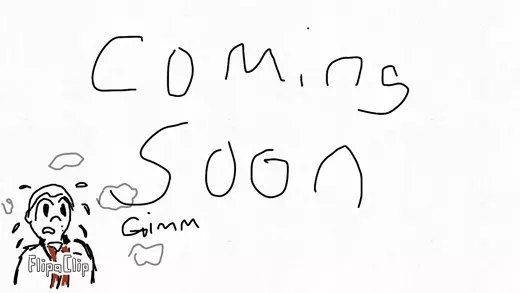 Coming
Soon
Gimm
FlipaClip